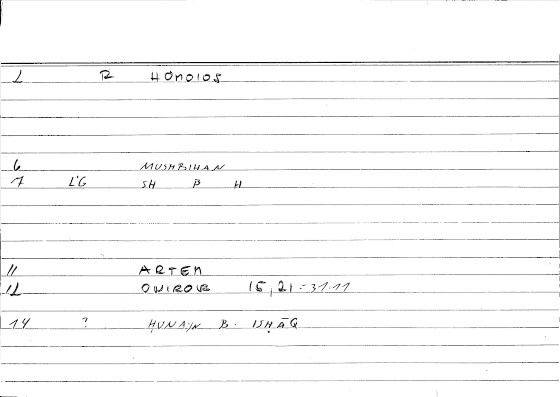 1 R HOMOIOS
6 MUSHBIHAN
7 LG SH B H
11 ARTEM
12 ONIROR 15,21 = 31.11
14 ? HUNAYN B. ISḤĀQ